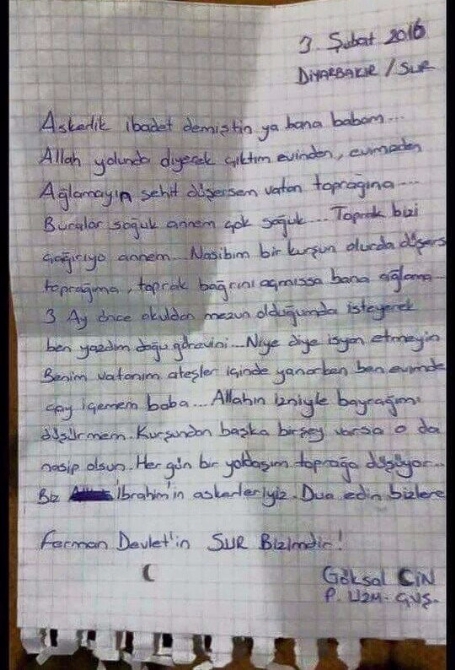 3 Şubat 2016
DİYARBAKIR / SUR
Askerlik ibadet demiştin ya bana babam...
Allah yolunda diyerek çıktım evinden, evimden
Ağlamayın şehit düşersem vatan toprağına...
Buralar soğuk annem çok soğuk... Toprak bizi
çağırıyo annem... Nasibim bir kurşun olurda düşers
toprağıma, toprak bağrını açmışsa bana ağlama...
3 Ay önce okuldan mezun olduğumda isteyerek
ben yazdım doğu görevini... Niye diye isyan etmeyin
Benim vatanım ateşler içinde yanarken ben evimde
çay içemem baba... Allahın izniyle bayrağımı
düşürmem. Kurşundan başka birşey varsa o da
nasip olsun. Her gün bir yoldaşım toprağa düşüyor...
Biz İbrahim'in askerleriyiz. Dua edin bizlere
Ferman Devlet'in SUR Bizimdir!
Göksal CİN
P. UZM. ÇVŞ.